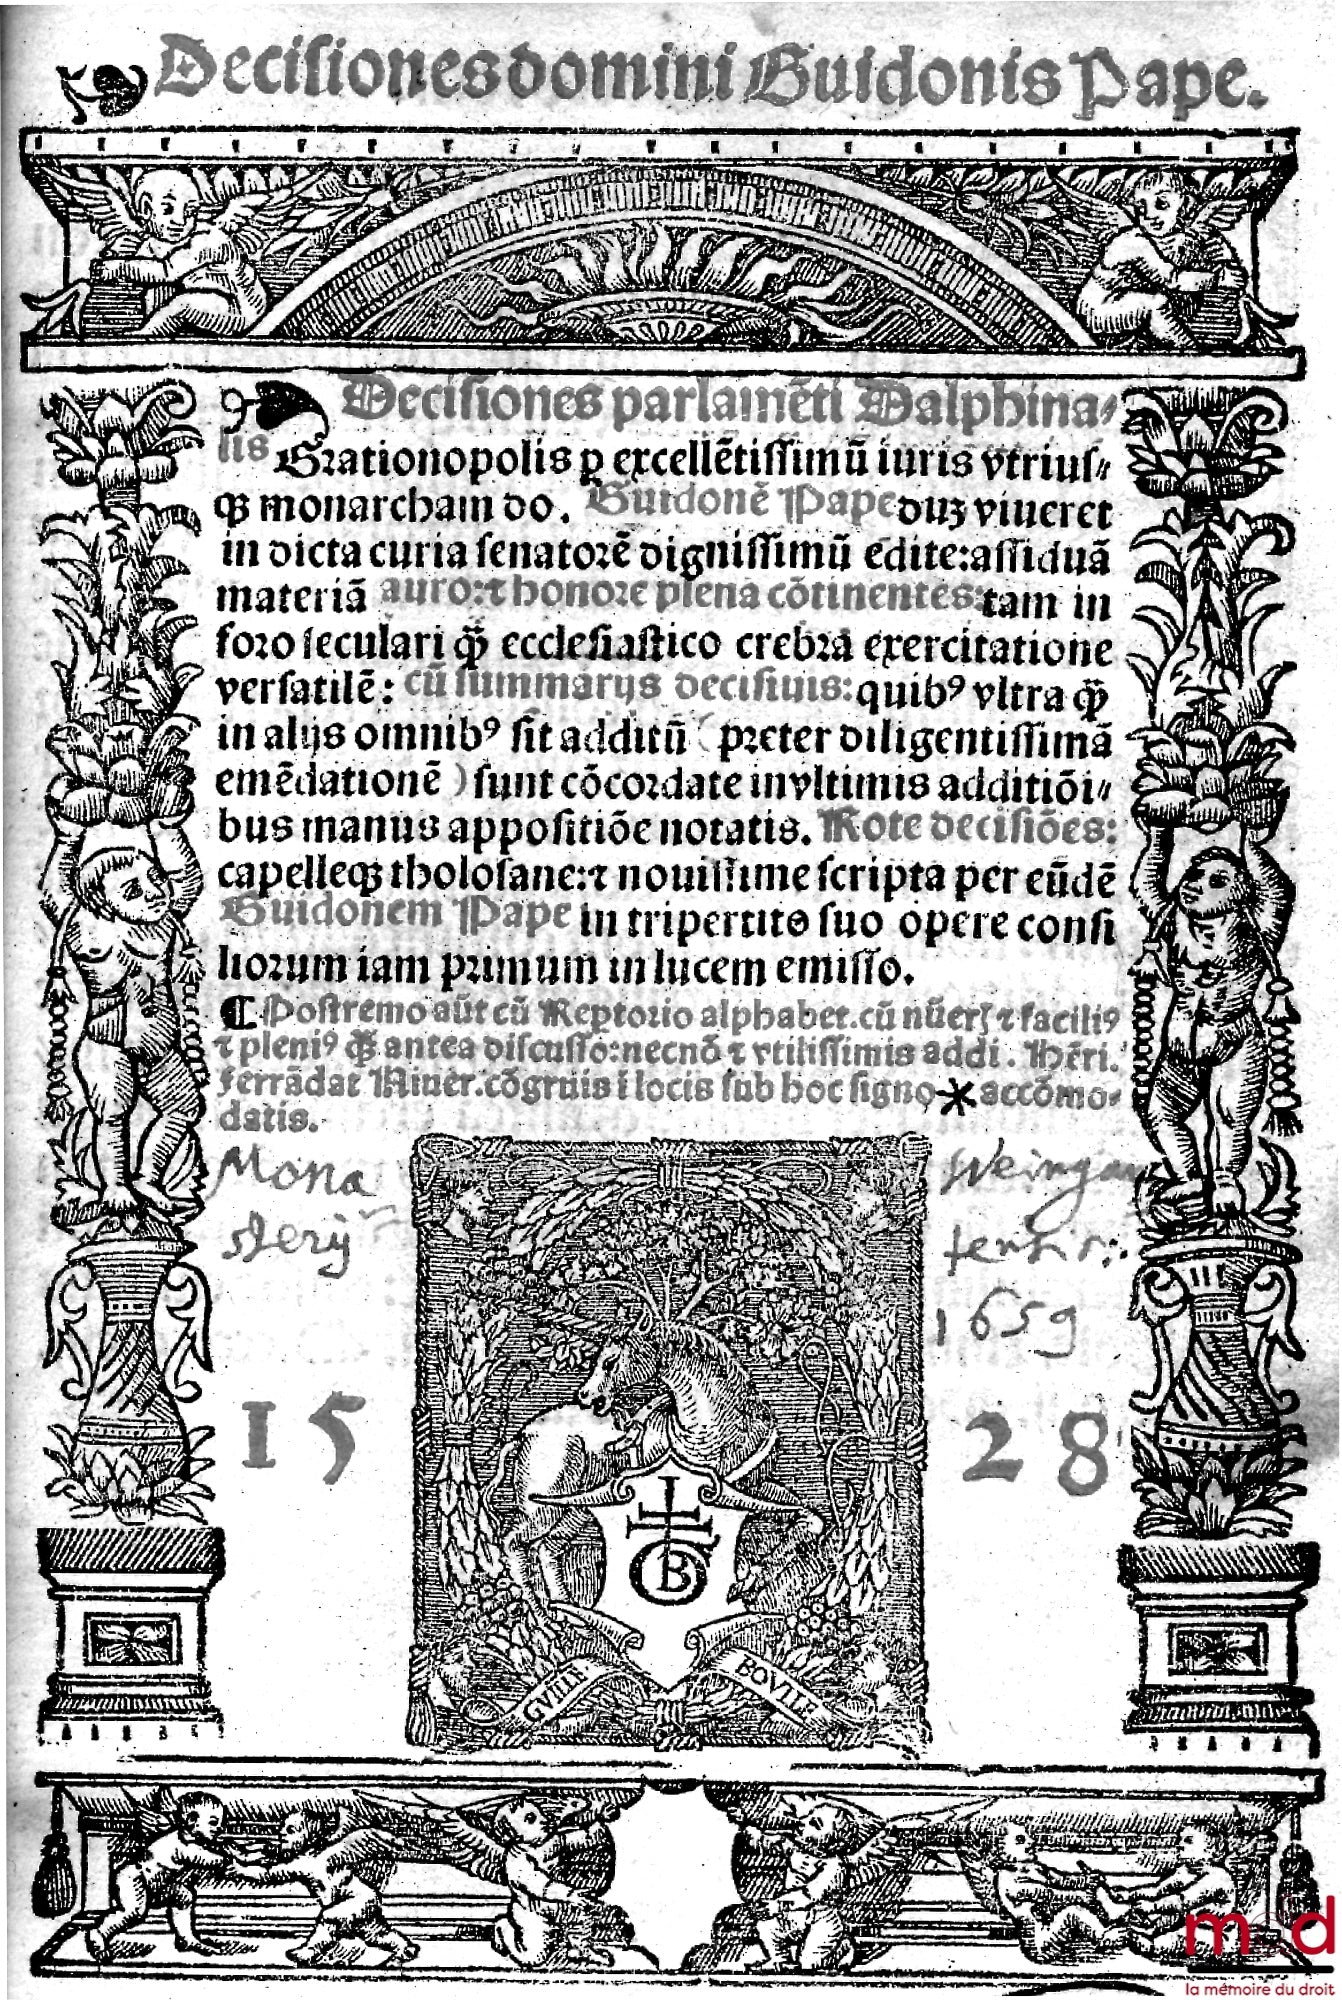 Decisiones domini Guidonis Pape.
Decisiones parlamēti Dalphina⸗
lis Grationopolis ꝑ excellētissimū iuris vtrius⸗
qꝫ monarcham do. Guidonē Pape duꝫ viueret
in dicta curia senatorē dignissimū edite: assiduā
materiā auro: ⁊ honore plena cōtinentes: tam in
foro seculari qꝫ̄ ecclesiastico crebra exercitatione
versatilē: cū summarijs decisiuis: quibꝰ vltra qꝫ̄
in alijs omnibꝰ sit additū (preter diligentissimā
emēdationē) sunt cōcordate in vltimis additiōi⸗
bus manus appositiōe notatis. Rote decisiōes:
capelleqꝫ tholosane: ⁊ nouissime scripta per eūdē
Guidonem Pape in tripertito suo opere consi
liorum iam primum in lucem emisso.
¶ Postremo aūt cū Reptorio alphabet. cū nūerꝭ ⁊ faciliꝰ
⁊ pleniꝰ qꝫ̄ antea discusso: necnō ⁊ vtilissimis addi. Hēri.
Ferrādat Niuer. cōgruis ī locis sub hoc signo * accōmo⸗
datis.
Mona Weingar
sterij tensis:
1659
15 28
I
GB
GVILL BOVLLE
m d
la mémoire du droit